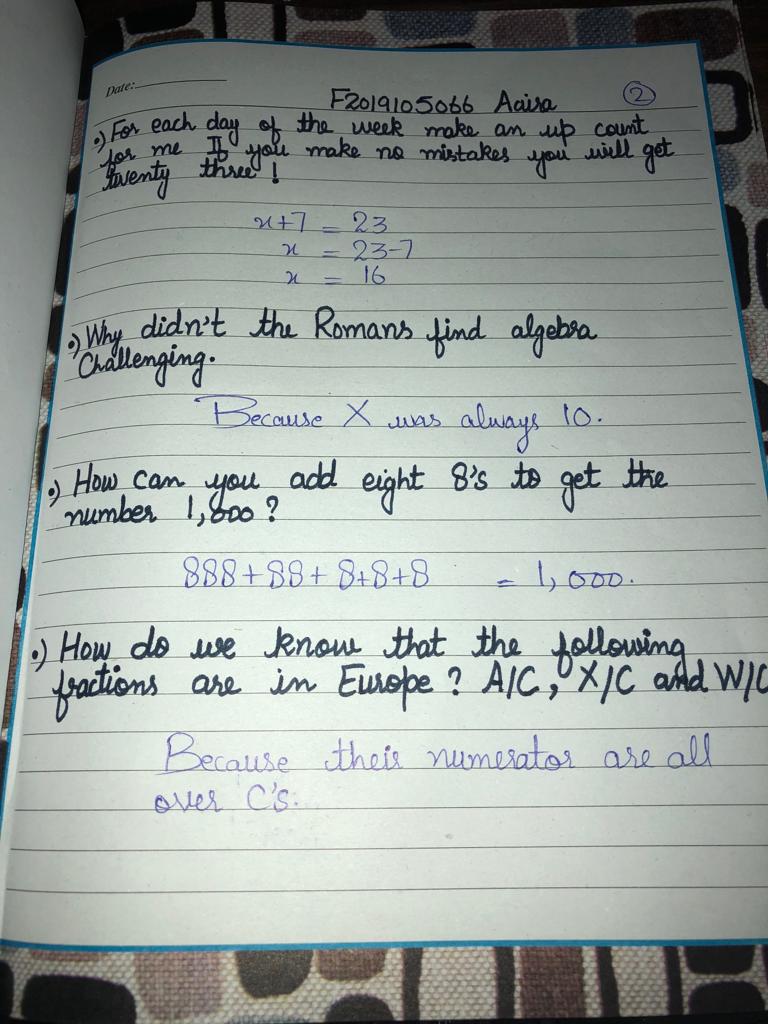 Date:
F2019105066 Aaisa 2
•) For each day of the week make an up count
for me If you make no mistakes you will get
twenty three!
x+7 = 23
x = 23-7
x = 16
•) Why didn't the Romans find algebra
Challenging.
Because X was always 10.
•) How can you add eight 8's to get the
number 1,000?
888+88+8+8+8 = 1,000.
•) How do we know that the following
fractions are in Europe? A/C, X/C and W/C
Because their numerator are all
over C's.